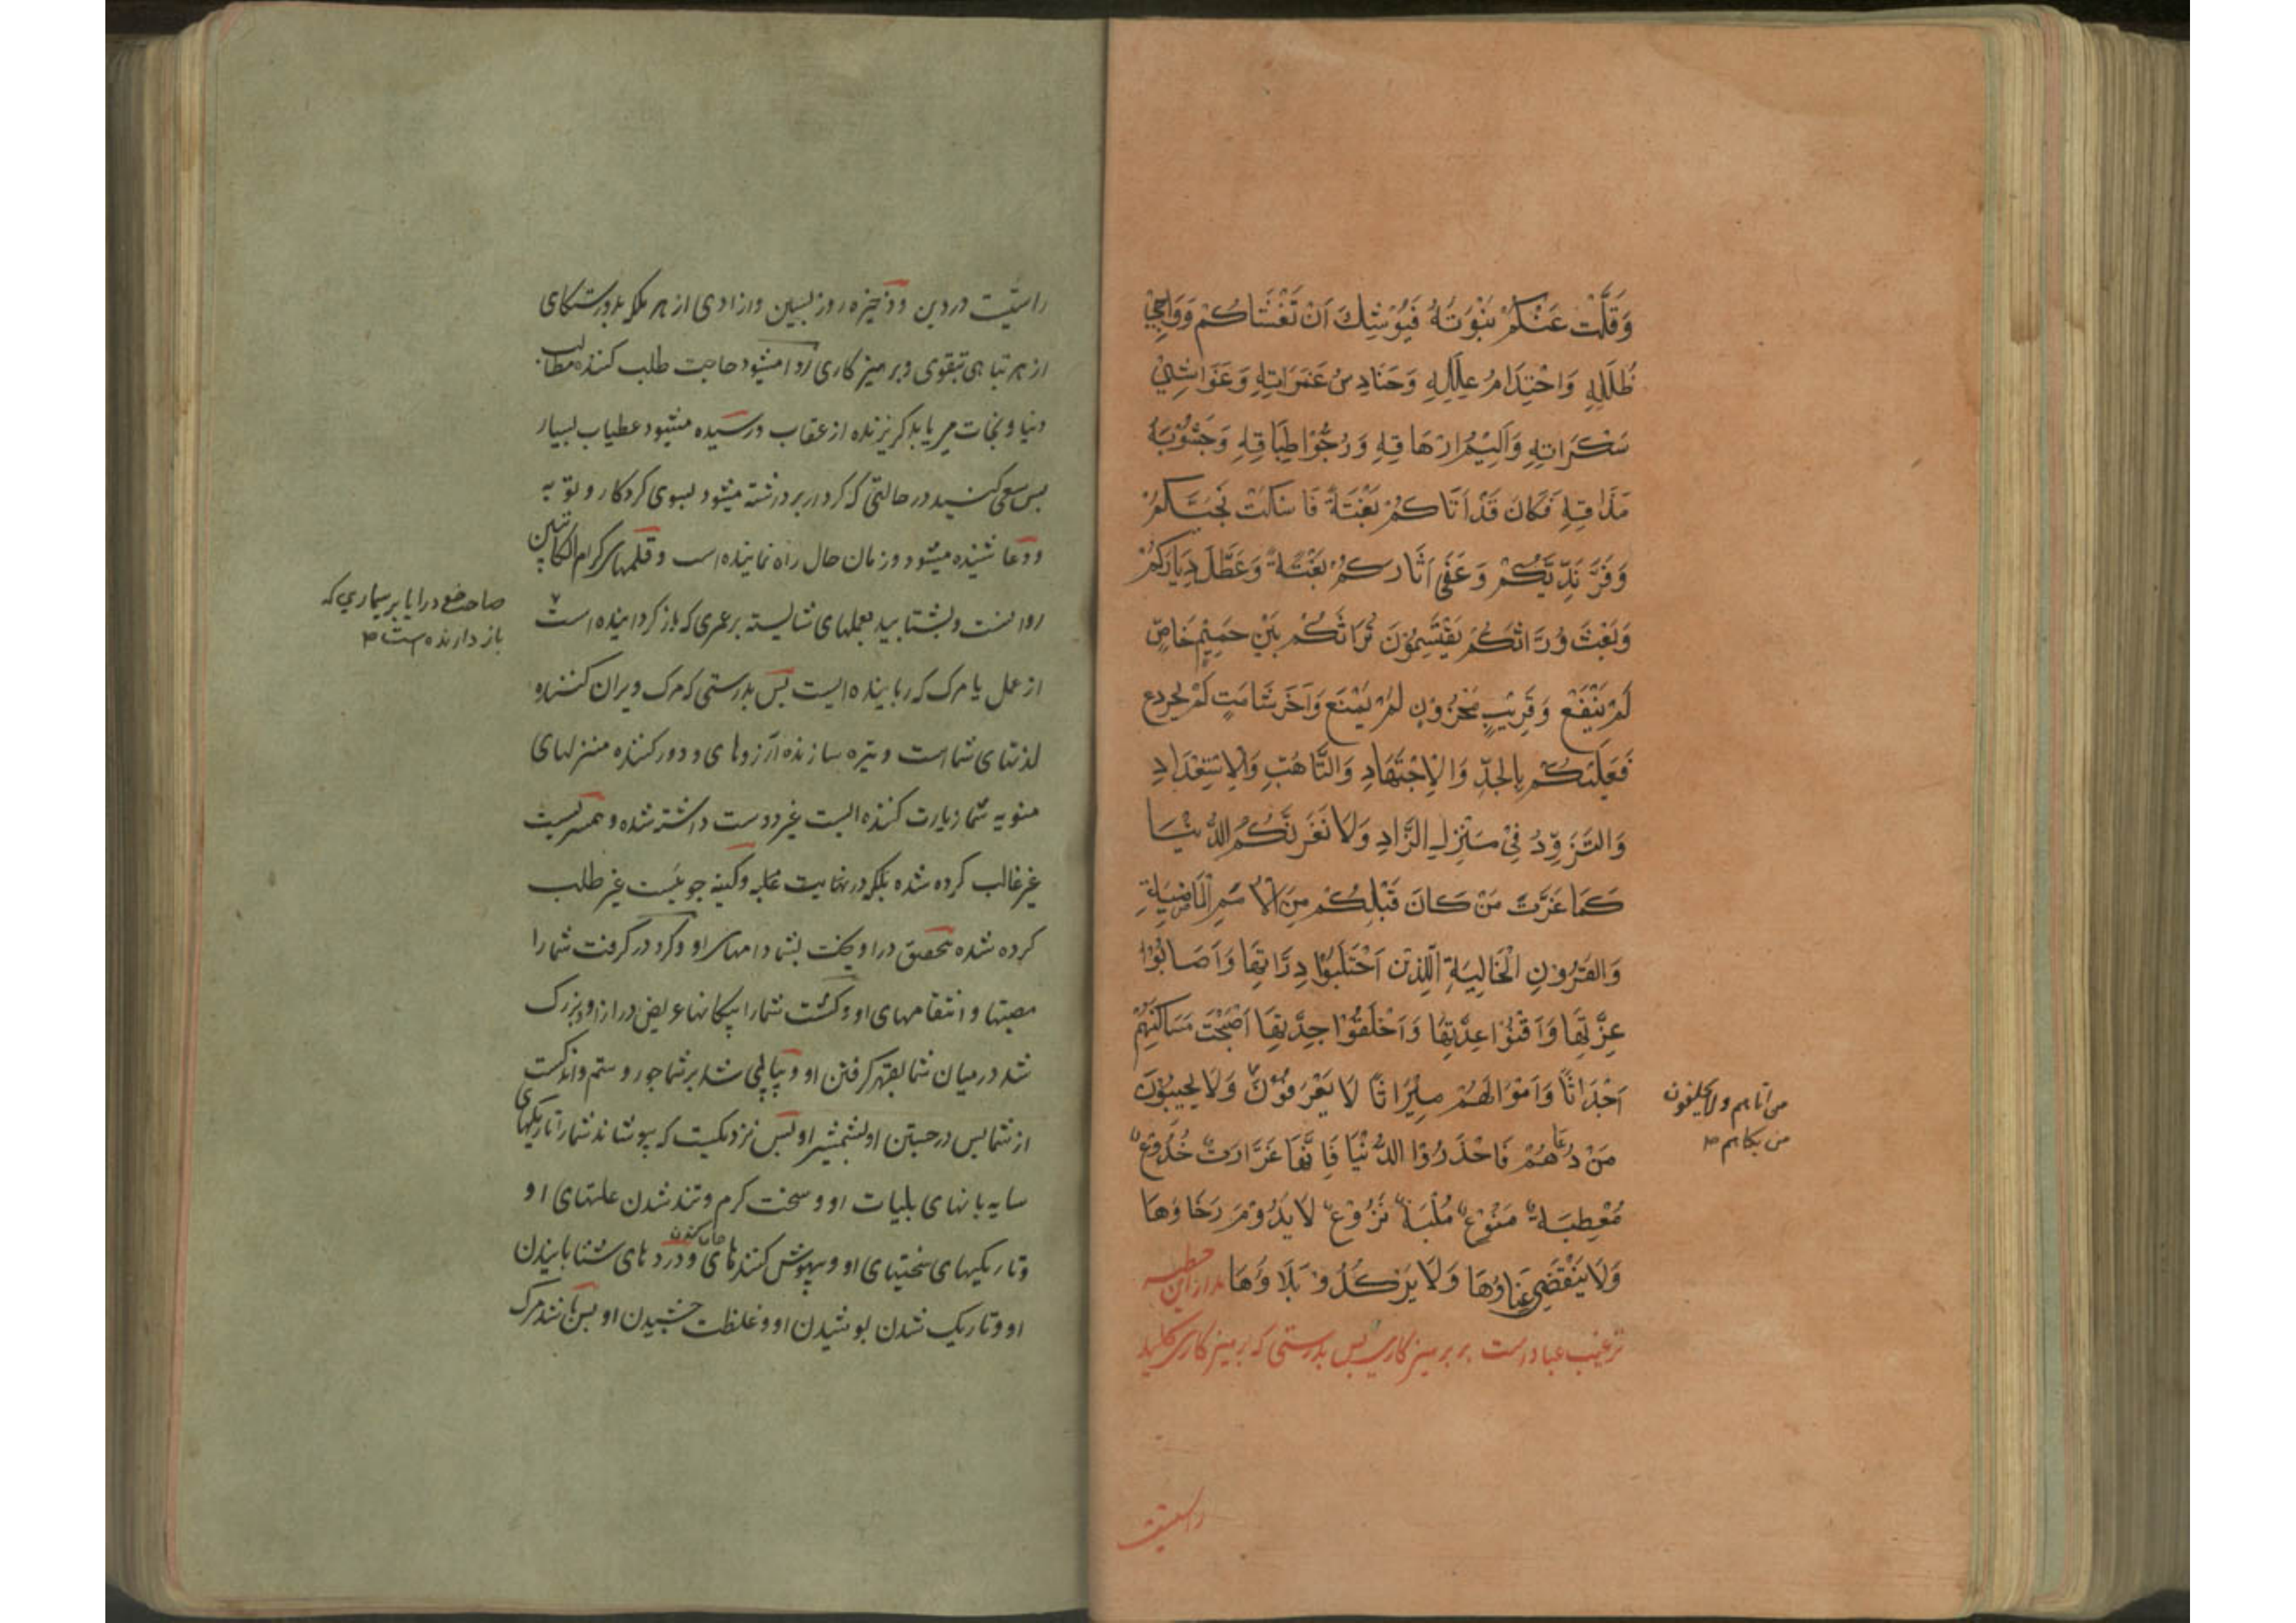 وَقَلَّتْ عَنْكُمْ نَبْوَتُهُ فَيُوْشِكَ اَنْ تَغْشَاكُمْ دَوَاجِيْ
ظُلَلِهِ وَاحْتِدَامُ عِلَلِهِ وَحَنَادِسُ غَمَرَاتِهِ وَغَوَاشِيْ
سَكَرَاتِهِ وَاَلِيْمُ اِرْهَاقِهِ وَدُجُوّ اِطْبَاقِهِ وَجُشُوْبَةُ
مَذَاقِهِ فَكَانَ قَدْ اَتَاكُمْ بَغْتَةً فَاَسْكَتَ نَجِيَّكُمْ
وَفَرَّ نَدِيَّكُمْ وَعَفَّى اٰثَارَكُمْ بَغْتَةً وَعَطَّلَ دِيَارَكُمْ
وَبَعَثَ وُرَّاثَكُمْ يَقْتَسِمُوْنَ تُرَاثَكُمْ بَيْنَ حَمِيْمٍ خَاصٍّ
لَمْ يَنْفَعْ وَقَرِيْبٍ مَحْزُوْنٍ لَمْ يَمْنَعْ وَاٰخَرَ شَامِتٍ لَمْ يَجْزَعْ
فَعَلَيْكُمْ بِالْجِدِّ وَالْاِجْتِهَادِ وَالتَّاَهُّبِ وَالْاِسْتِعْدَادِ
وَالتَّزَوُّدِ فِيْ مَنْزِلِ الزَّادِ وَلَا تَغُرَّنَّكُمُ الدُّنْيَا
كَمَا غَرَّتْ مَنْ كَانَ قَبْلَكُمْ مِنَ الْاُمَمِ الْمَاضِيَةِ
وَالْقُرُوْنِ الْخَالِيَةِ الَّذِيْنَ احْتَلَبُوْا دِرَّتَهَا وَاَصَابُوْا
غِرَّتَهَا وَاَفْنَوْا عِدَّتَهَا وَاَخْلَقُوْا جِدَّتَهَا اَصْبَحَتْ مَسَاكِنُهُمْ
اَجْدَاثًا وَاَمْوَالُهُمْ مِيْرَاثًا لَا يَعْرِفُوْنَ وَلَا يُجِيْبُوْنَ
مَنْ دَعَاهُمْ فَاحْذَرُوْا الدُّنْيَا فَاِنَّهَا غَرَّارَةٌ خُدُوْعٌ
مُعْطِيَةٌ مَنُوْعٌ مُلْبِسَةٌ نَزُوْعٌ لَا يَدُوْمُ رَخَاؤُهَا
وَلَا يَنْقَضِيْ عَنَاؤُهَا وَلَا يَرْكُدُ بَلَاؤُهَا مدار این خطبه
ترغیب عباد است بر پرمیز کاری پس بدرستی که پرمیز کاری کلید
من اتاهم ولا يحفلون
من بكاهم
راستیت
راستیّت در دین و ذخیره روز پسین و ازادی از هر ملکه بدرستکای
از هر تباهی تبقوی و پرمیز کاری روا میشود حاجت طلب کننده مطالب
دنیا و نجات می یابد کریزنده از عقاب و رسیده میشود عطیاب بسیار
پس سعی کنید در حالتی که کردار برداشته میشود بسوی کردکار و توبه
و دعا شنیده میشود و زمان حال راه نماینده است و قلمهای کرام الکاتبین
روانست و بشتابید بعملهای شایسته بر عمری که باز کرداینده است
از عمل یا مرک که رباینده ایست پس بدرستی که مرک ویران کننده
لذتهای شما است و تیره سازنده آرزوهای و دور کننده منزلهای
منویه شما زیارت کننده ایست غیر دوست داشته شده و همسریست
غیر غالب کرده شده بلکه در نهایت غلبه و کینه جویست غیر طلب
کرده شده بتحقیق در اویخت بشما دامهای او و کرد در کرفت شما را
مصیتها و انتقامهای او و کشت شما را پیکانها عریض دراز او و بزرک
شد در میان شما بقهر کرفتن او و پیاپی شد بر شما جور و ستم و اندکست
از شما پس در جستن او بشمشیر او پس نزدیکست که بپوشاند شما را تاریکیهای
سایه بانهای بلیات او و سخت کرم و تند شدن علتهای او
و تاریکیهای سختیهای او و بیهوش کنندهای جان کندن و دردهای شتابانیدن
او و تاریک شدن پوشیدن او و غلظت چشیدن او پس باشد مرک
باز دارنده است